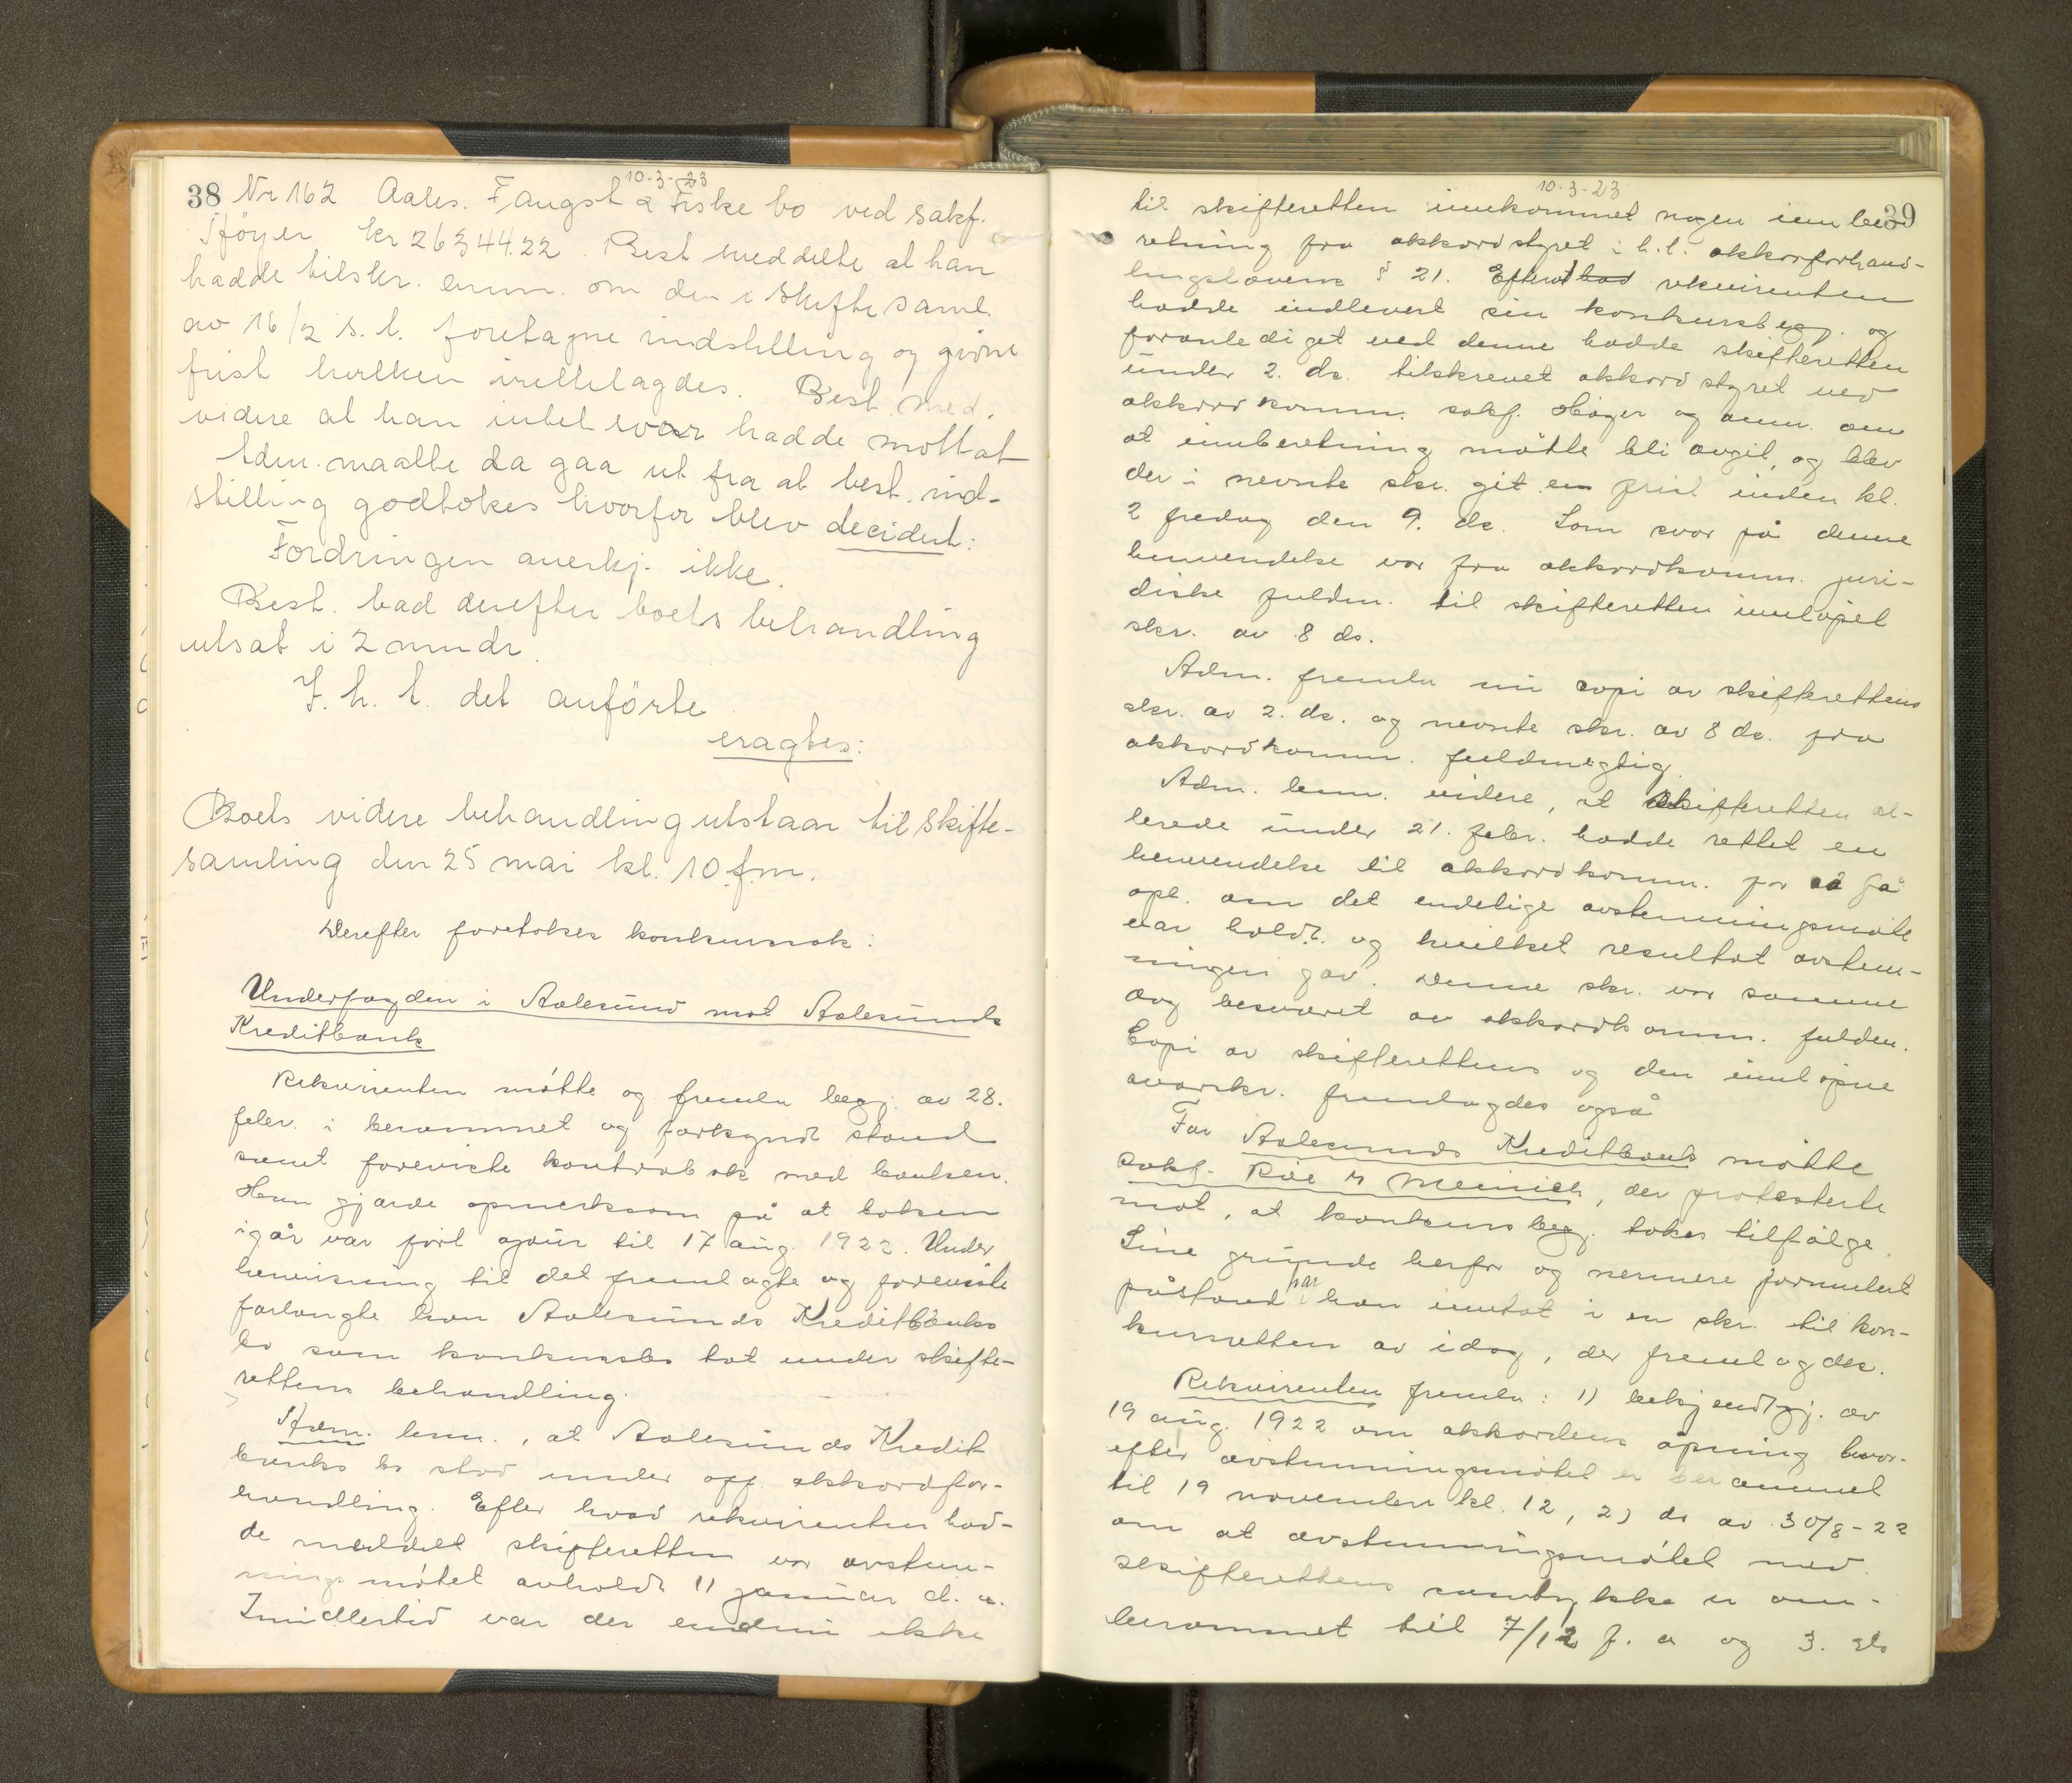 10-3-23
38 Nr 162 Aales. Fangst & Fiske bo ved sakf.
Höyer kr 26344.22. Best meddelte at han
hadde tilskr. anm. om den i Skiftesaml.
av 16/2 s. l. foretagne indstilling og givne
frist hvilken irettelagdes. Best. med.
videre at han intet svar hadde mottat
Adm. maatte da gaa ut fra at best. ind-
stilling godtokes hvorfor blev decidert:
Fordringen anerkj. ikke.
Best. bad derefter boets behandling
utsat i 2 mndr.
I. h. t. det anförte
eragtes:
Boets videre behandling utstaar til skifte-
samling den 25 mai kl. 10 f.m.
Derefter foretokes konkurssak:
Underfogden i Aalesund mot Aalesunds
Kreditbank
Rekvirenten møtte og fremla begj. av 28.
febr. i berammet og forkyndt stand
samt foreviste kontrabok med banken.
Han gjorde opmerksom på at boken
igår var ført ajour til 17 aug. 1922. Under
henvisning til det fremlagte og foreviste
forlangte han Aalesunds Kreditbanks
bo som konkursbo tat under skifte-
rettens behandling.
Adm. bem., at Aalesunds Kredit
banks bo stod under off. akkordfor-
handling. Efter hvad rekvirenten had-
de meddelt skifteretten var avstem-
nings møtet avholdt 11 januar d. a.
Imidlertid var der endnu ikke
10-3-23
39
til skifteretten innkommet nogen innbe-
retning fra akkordstyret i h.t. akkorforhand-
lingslovens § 21. Efterat had rekvirenten
hadde indlevert sin konkursbegj. og
foranlediget ved denne hadde skifteretten
under 2. ds. tilskrevet akkordstyret ved
akkordkomm. sakf. Høyer og anm. om
at innberetning måtte bli avgit, og blev
der i nevnte skr. git en frist inden kl.
2 fredag den 9. ds. Som svar på denne
henvendelse var fra akkordkomm. juri-
diske fuldm. til skifteretten innløpet
skr. av 8 ds.
Adm. fremla nu copi av skifterettens
skr. av 2. ds. og nevnte skr. av 8 ds. fra
akkordkomm. fuldmegtig.
Adm. bem. videre, at skifteretten al-
lerede under 21. febr. hadde rettet en
henvendelse til akkordkomm. for å få
opl. om det endelige avstemningsmøte
var holdt og hvilket resultat avstem-
ningen gav. Denne skr. var samme
dag besvaret av akkordkomm. fuldm.
Copi av skifterettens og den innløpne
svarskr. fremlagdes også
For Aalesunds Kreditbank møtte
sakf. Róe M Meinich, der protesterte
mot, at konkursbegj. tokes tilfølge.
Sine grunde herfor og nermere formulert
påstand har han inntat i en skr. til kon-
kursretten av idag, der fremlagdes.
Rekvirenten fremla: 1) bekjendtgj. av
19 aug. 1922 om akkordens åpning hvor-
efter avstemningsmøtet er berammet
til 19 november kl. 12, 2) do av 30/8-22
om at avstemningsmøtet med
skifterettens samtykke er om-
berammet til 7/12 f. a og 3. do